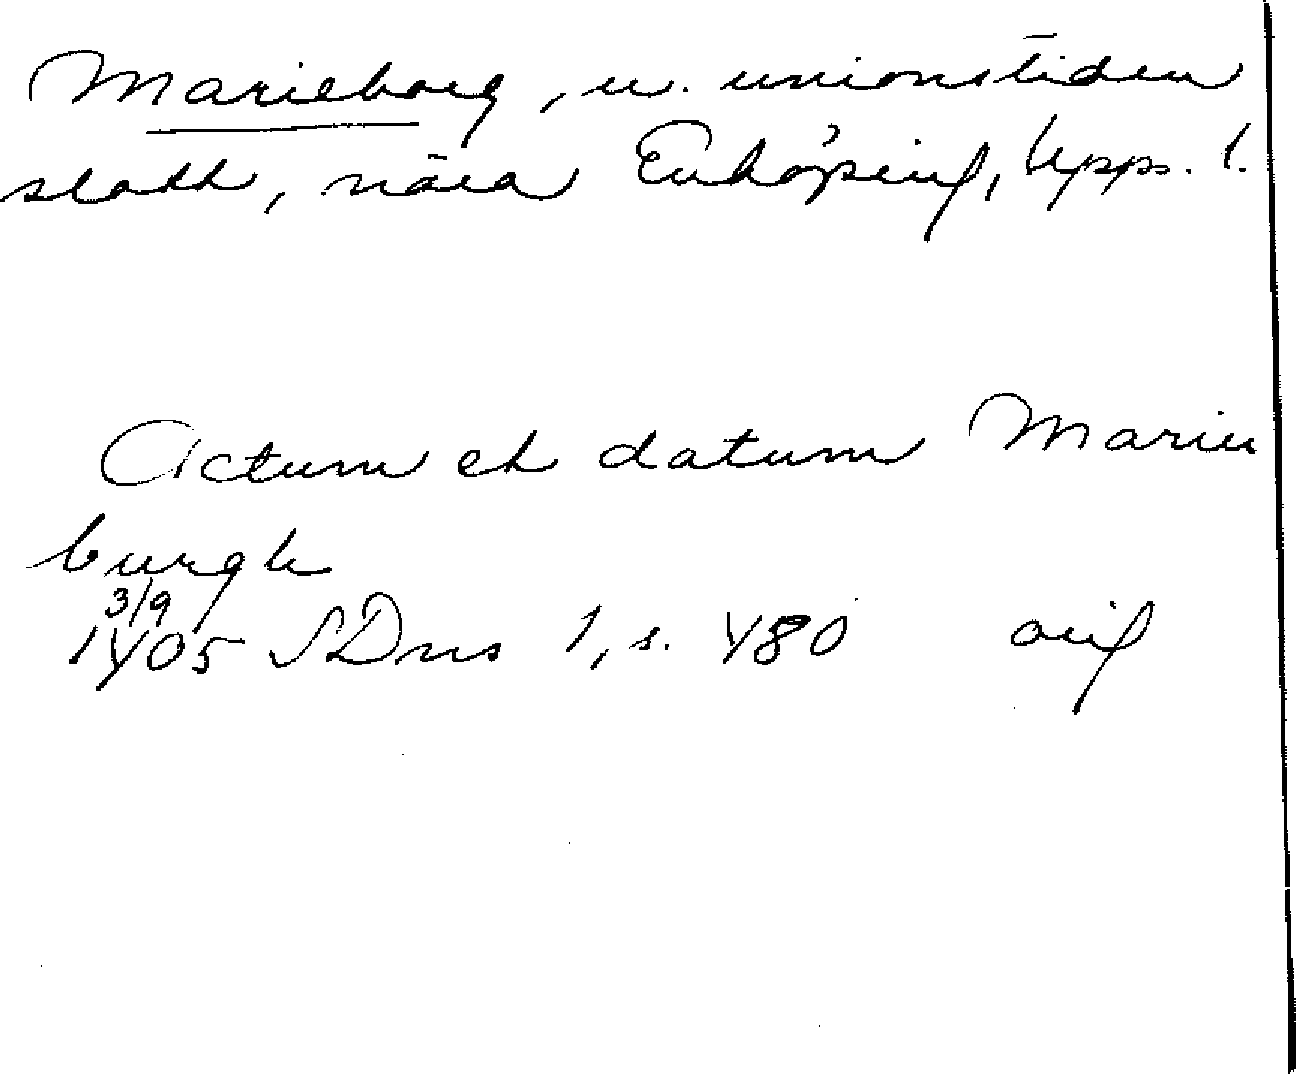 Marieborg, u. unionstiden
slott, nära Enköping, Upps. l.
Actum et datum Marien
burgh
3/9
1405 SDns 1, s. 480 orig